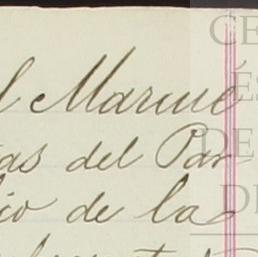 l Marme
as del Par
io de la
CE
ÉS
DE
D